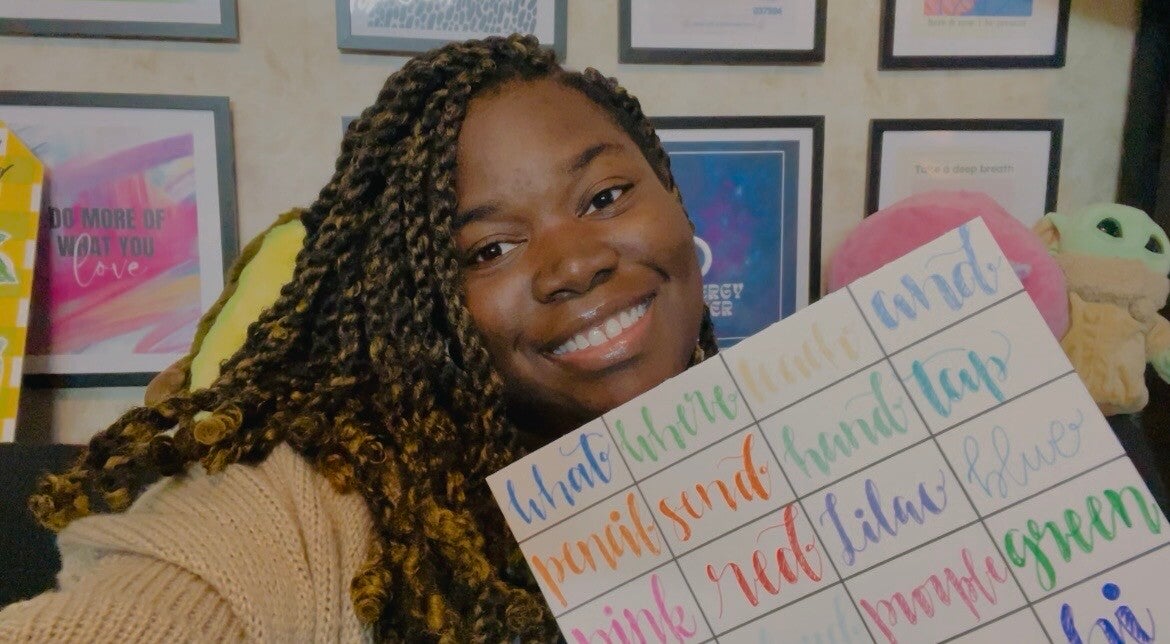 DO MORE OF
WHAT YOU
love
Take a deep breath
what where and
pencil send hand tap
pink red Lilac blue
green
hi